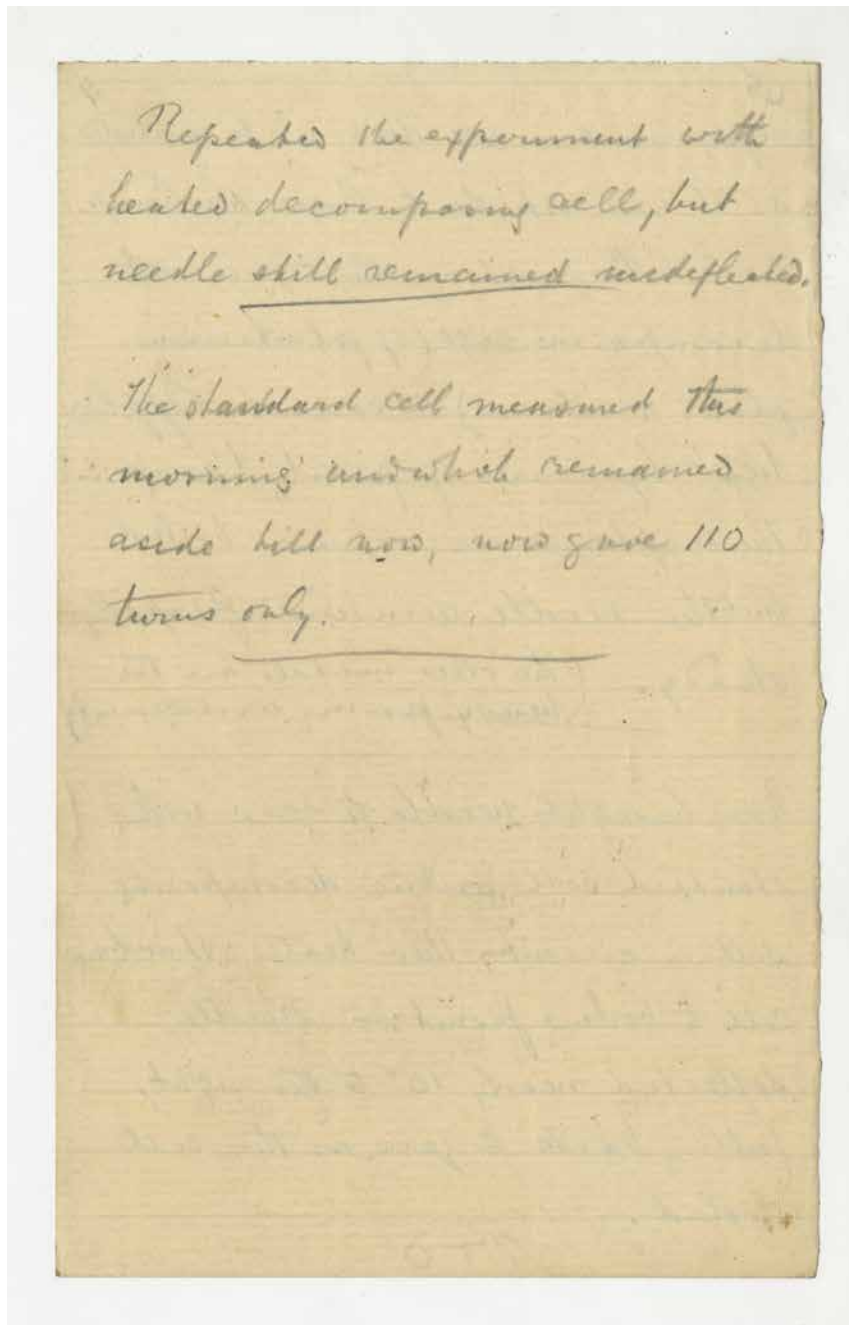 Repeated the experiment with
heated decomposing cell, but
needle still remained undeflected.
The standard cell measured this
morning and which remained
aside till now, now gave 110
turns only.